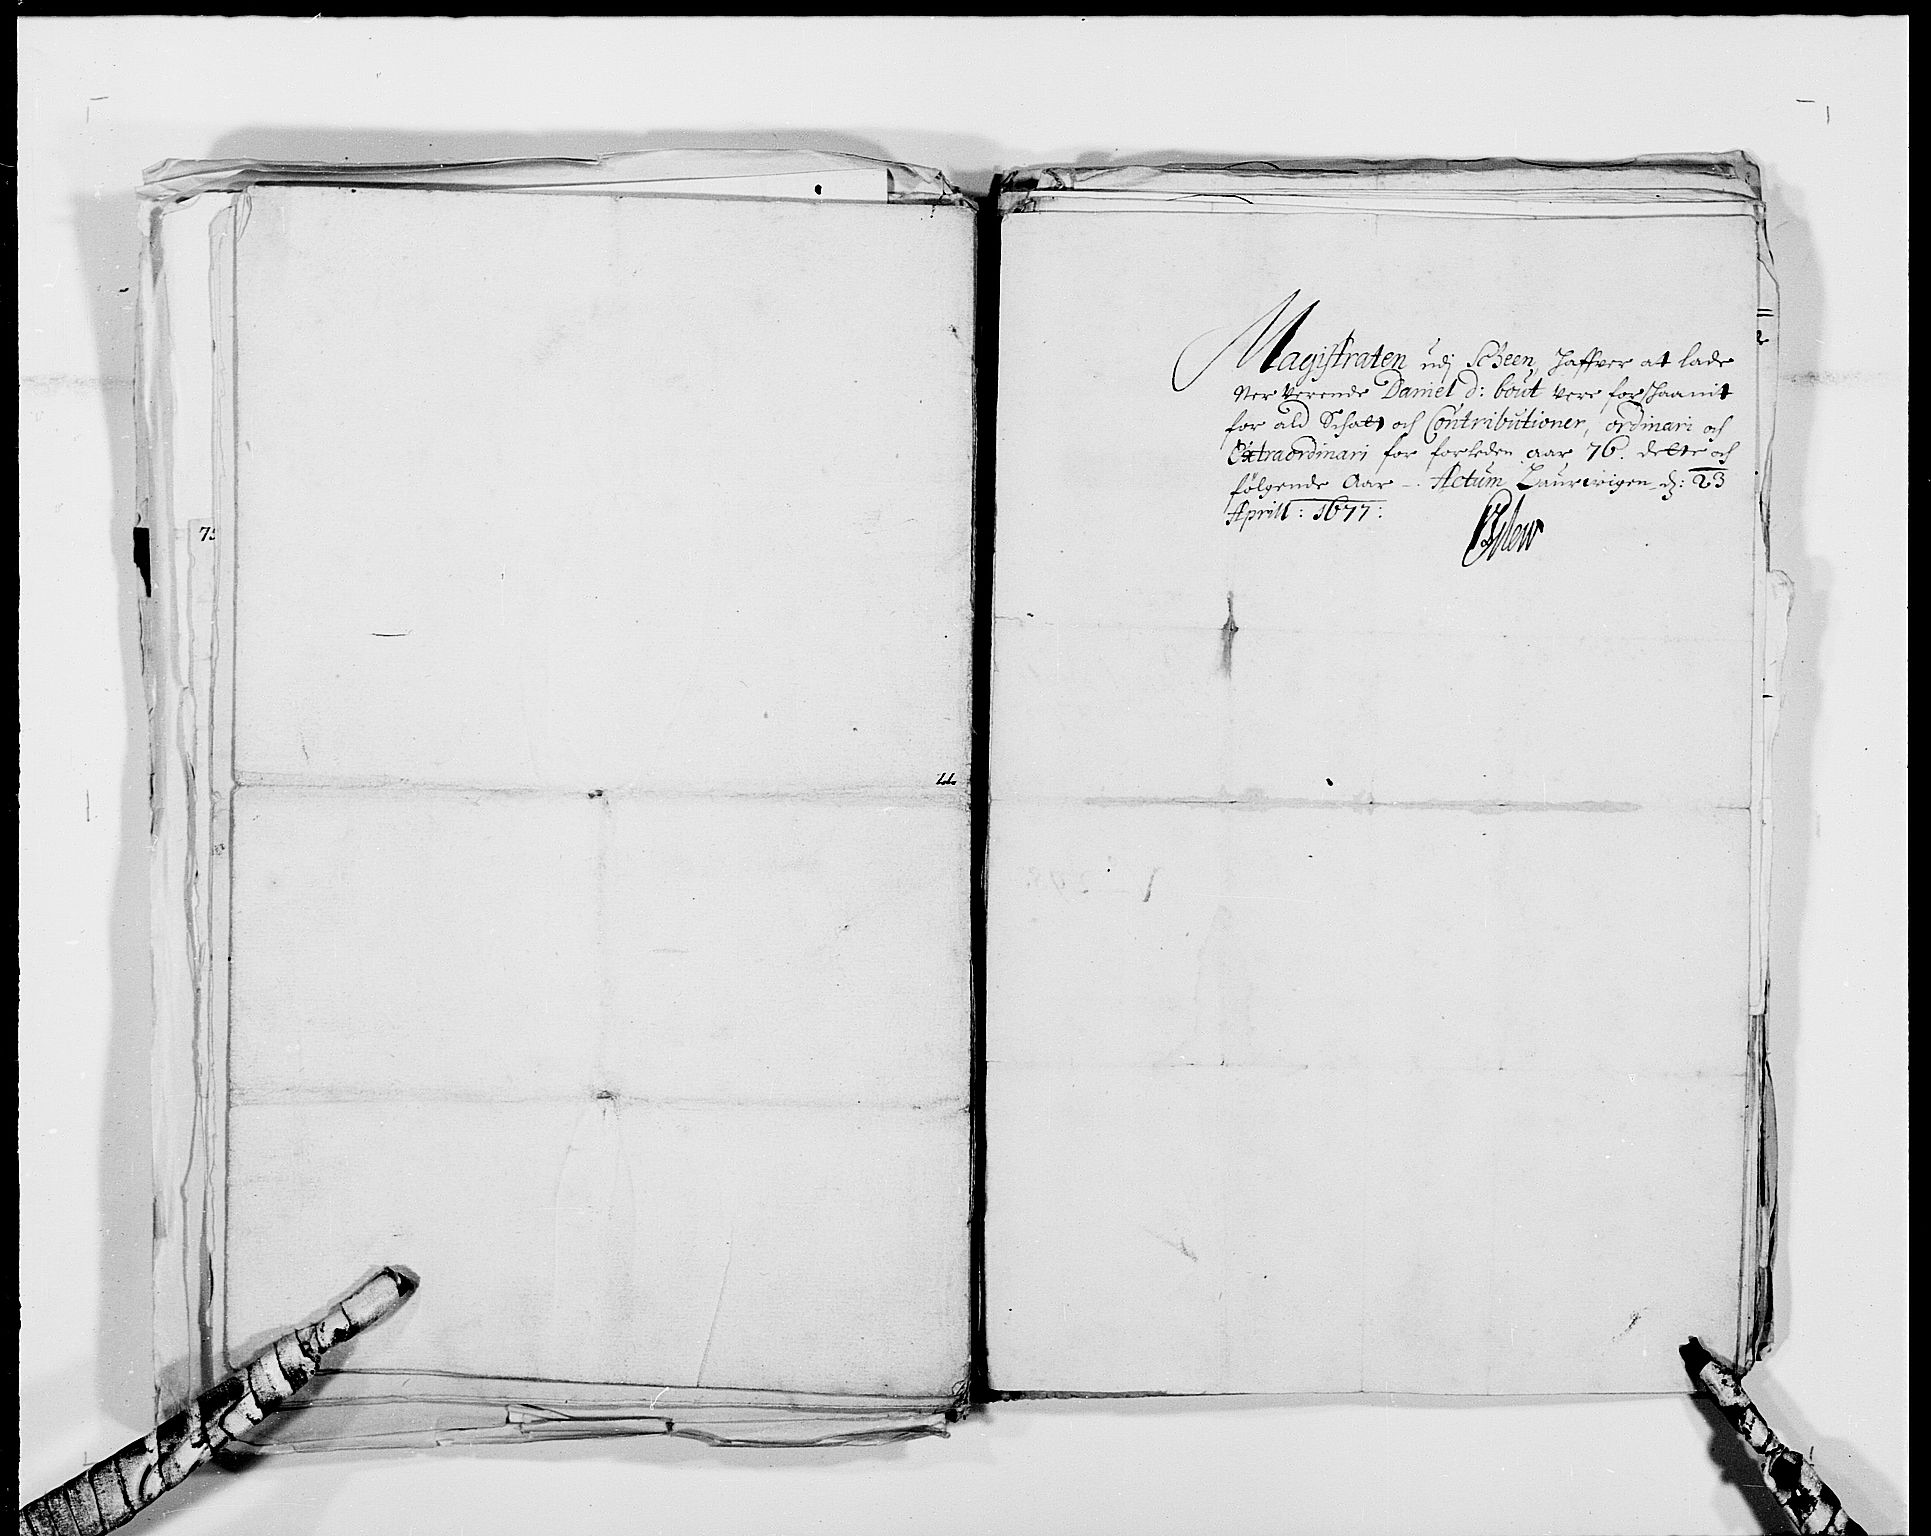 75
Magistraten udj Scheen, haffver at lade
nerverende Daniel d: bout vere forschaanit
for ald Schatt och Contributioner, ordinari och
Extraordinari for forleden aar 76. dette och
følgende Aar –. Actum Laurwigen d: 23
Aprill: 1677: